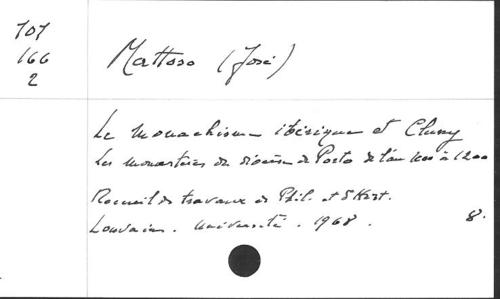 707
166
2
Mattoso (José)
Le monachisme ibérique et Cluny
Les monastères du diocèse de Porto de l'an mil à 1200
Recueil de travaux de Phil. et d'Hist.
Louvain. Université. 1968. 8.